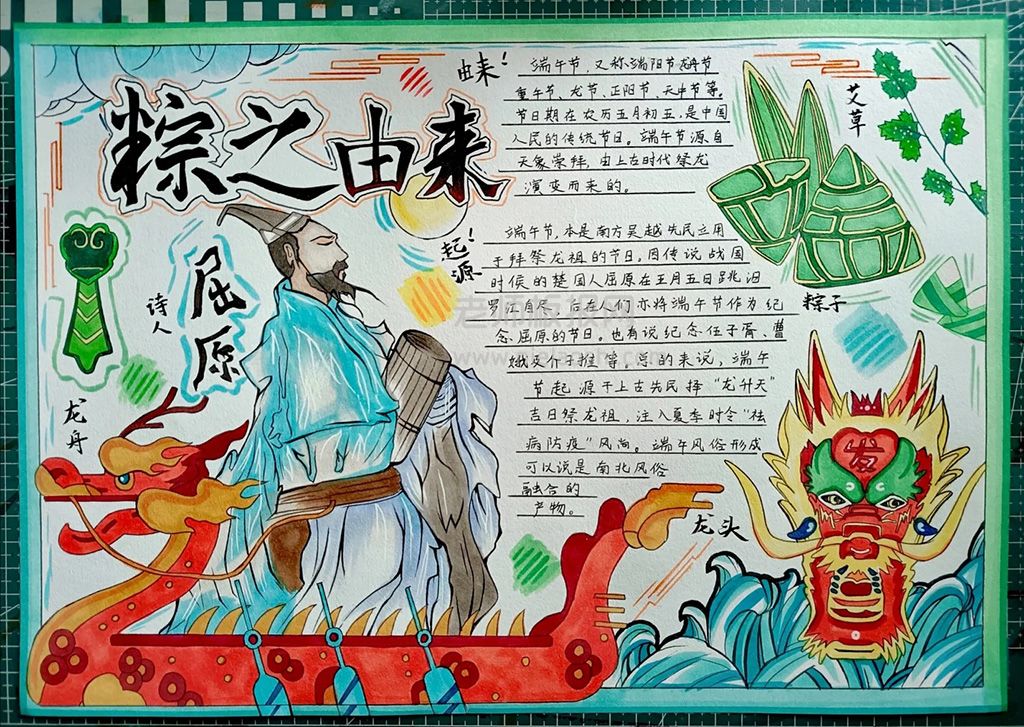 粽之由来
由来!
端午节,又称端阳节、龙舟节
重午节、龙节、正阳节、天中节等。
节日期在农历五月初五,是中国
人民的传统节日。端午节源自
天象崇拜,由上古时代祭龙
演变而来的。
艾草
粽子
诗人
屈原
起源!
端午节,本是南方吴越先民立用
于拜祭龙祖的节日,因传说战国
时候的楚国人屈原在五月五日跳汨
罗江自尽,后在人们亦将端午节作为纪
念屈原的节日。也有说纪念伍子胥、曹
娥及介子推等。总的来说,端午
节起源于上古先民择“龙升天”
吉日祭龙祖,注入夏季时令“祛
病防疫”风尚。端午风俗形成
可以说是南北风俗
融合的
产物。
龙舟
龙头
发